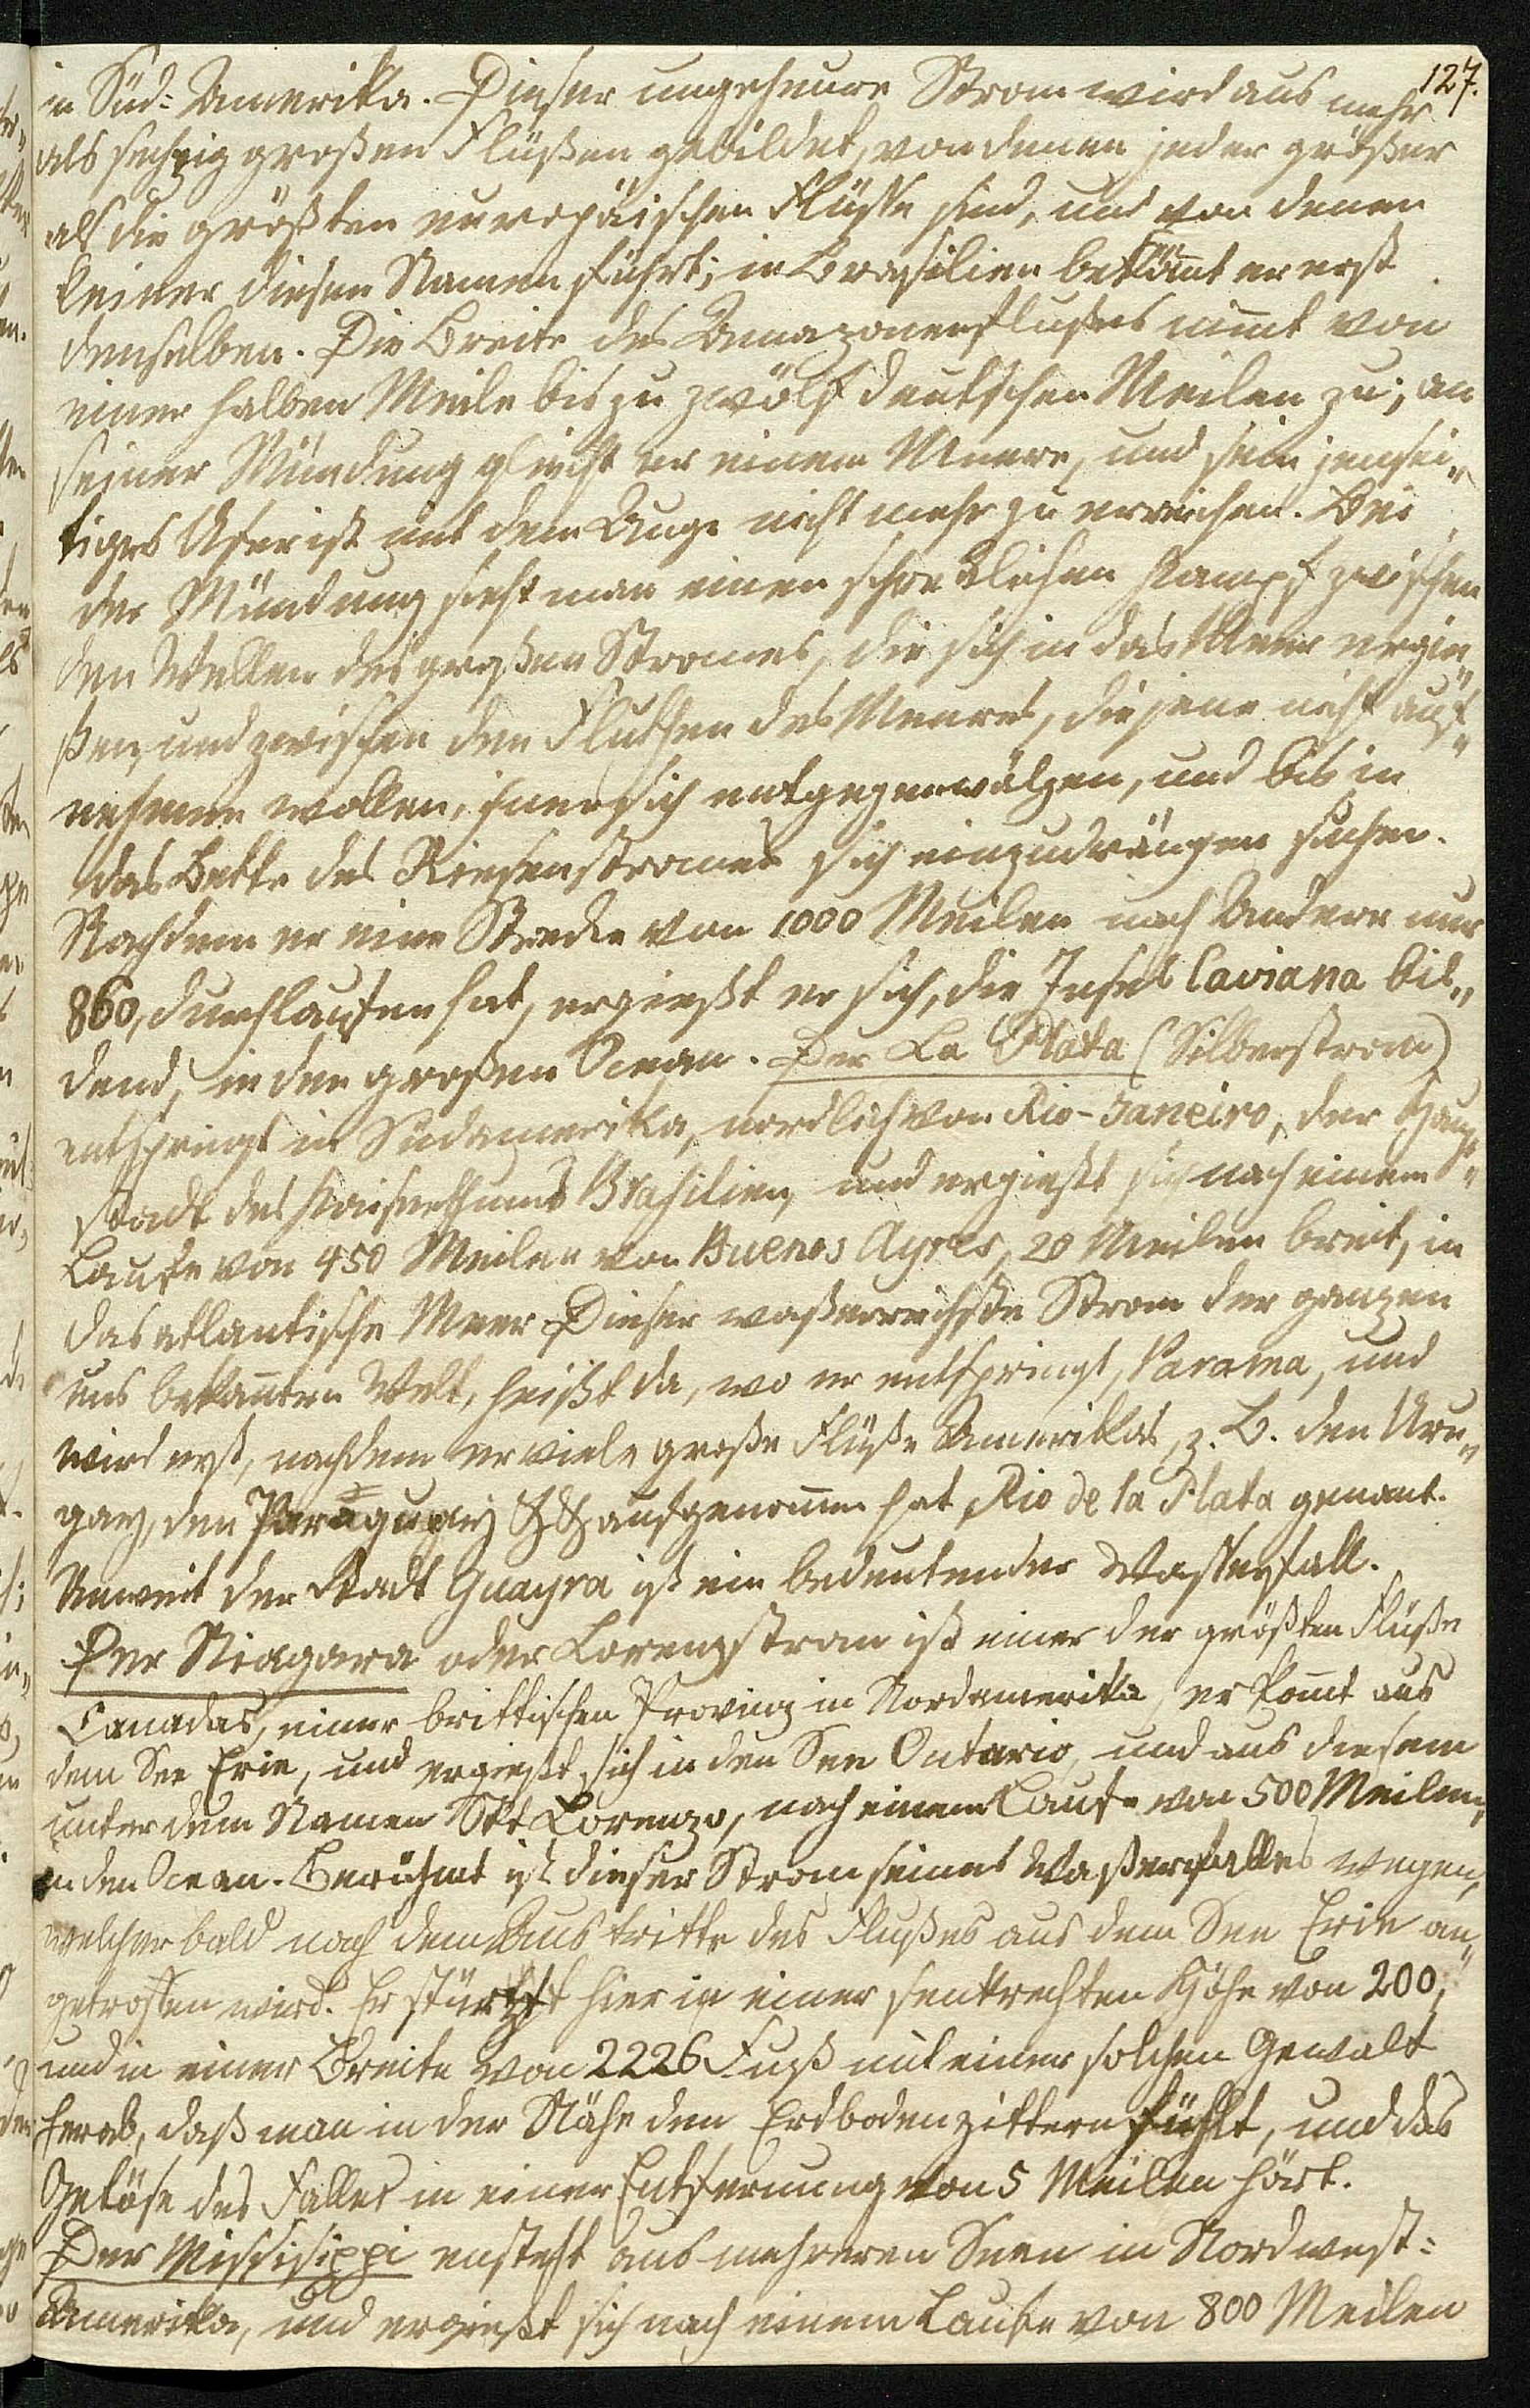 127.
in Süd-Amerika. Dieser ungeheure Strom wird aus mehr
als sechzig großen Flüßen gebildet, von denen jeder größer
als die größten europäischen Flüsse sind, und von denen
keiner diesen Namen führt; in Brasilien bekömt er erst
denselben. Die Breite des Amazonenflußes nimt von
einer halben Meile bis zu zwölf deutschen Meilen zu; an
seiner Mündung gleicht er einem Meere, und sein jensei„
tiges Ufer ist mit dem Auge nicht mehr zu erreichen. Bei
der Mündung sieht man einen schrecklichen Kampf zwischen
den Wellen des großen Stromes, die sich in das Meer ergie„
ßen, und zwischen den Fluthen des Meeres, die jene nicht auf„
nehmen wollen, ihnen sich entgegenwälzen, und bis in
das Bette des Riesenstromes sich einzudrängen suchen.
Nachdem er eine Strecke von 1000 Meilen nach Andern nur
860, durchlaufen hat, ergießt er sich, die Insel Caviana bil„
dend, in den großen Ocean. Der La Plata (Silberstrom)
entspringt in Südamerika, nordlich von Rio-Janeiro, der Haupt„
stadt des Kaiserthums Brasilien, und ergießt sich nach einem
Laufe von 450 Meilen von Buenos Ayres, 20 Meilen breit, in
das atlantische Meer. Dieser waßerreichste Strom der ganzen
uns bekannten Welt, heißt da, wo er entspringt, Parama, und
wird erst, nachdem er viele große Flüße Amerikas, z. B. den Uru„
gay, den Paraguay &&. aufgenommen hat, Rio de la Plata genant.
Unweit der Stadt Guayra ist ein bedeutender Wasserfall.
Der Niagara oder Lorenzstrom ist einer der größten Flüße
Canadas, einer brittischen Provinz in Nordamerika, er komt aus
dem See Erie, und ergießt sich in den See Ontario, und aus diesem
unter dem Namen Skt Lorenzo, nach einem Laufe von 500 Meilen,
in den Ocean. Berühmt ist dieser Strom seines Waßerfalles wegen,
welcher bald nach dem Austritte des Flußes aus dem See Erie an„
getroffen wird. Er stürtzt hier in einer senkrechten Höhe von 200,
und in einer Breite von 2226 Fuß mit einer solchen Gewalt
herab, daß man in der Nähe den Erdboden zittern fühlt, und das
Getöse des Falles in einer Entfernung von 5 Meilen hört.
Der Missisippi ensteht aus mehreren Seen in Nordwest-
Amerika, und ergießt sich nach einem Laufe von 800 Meilen